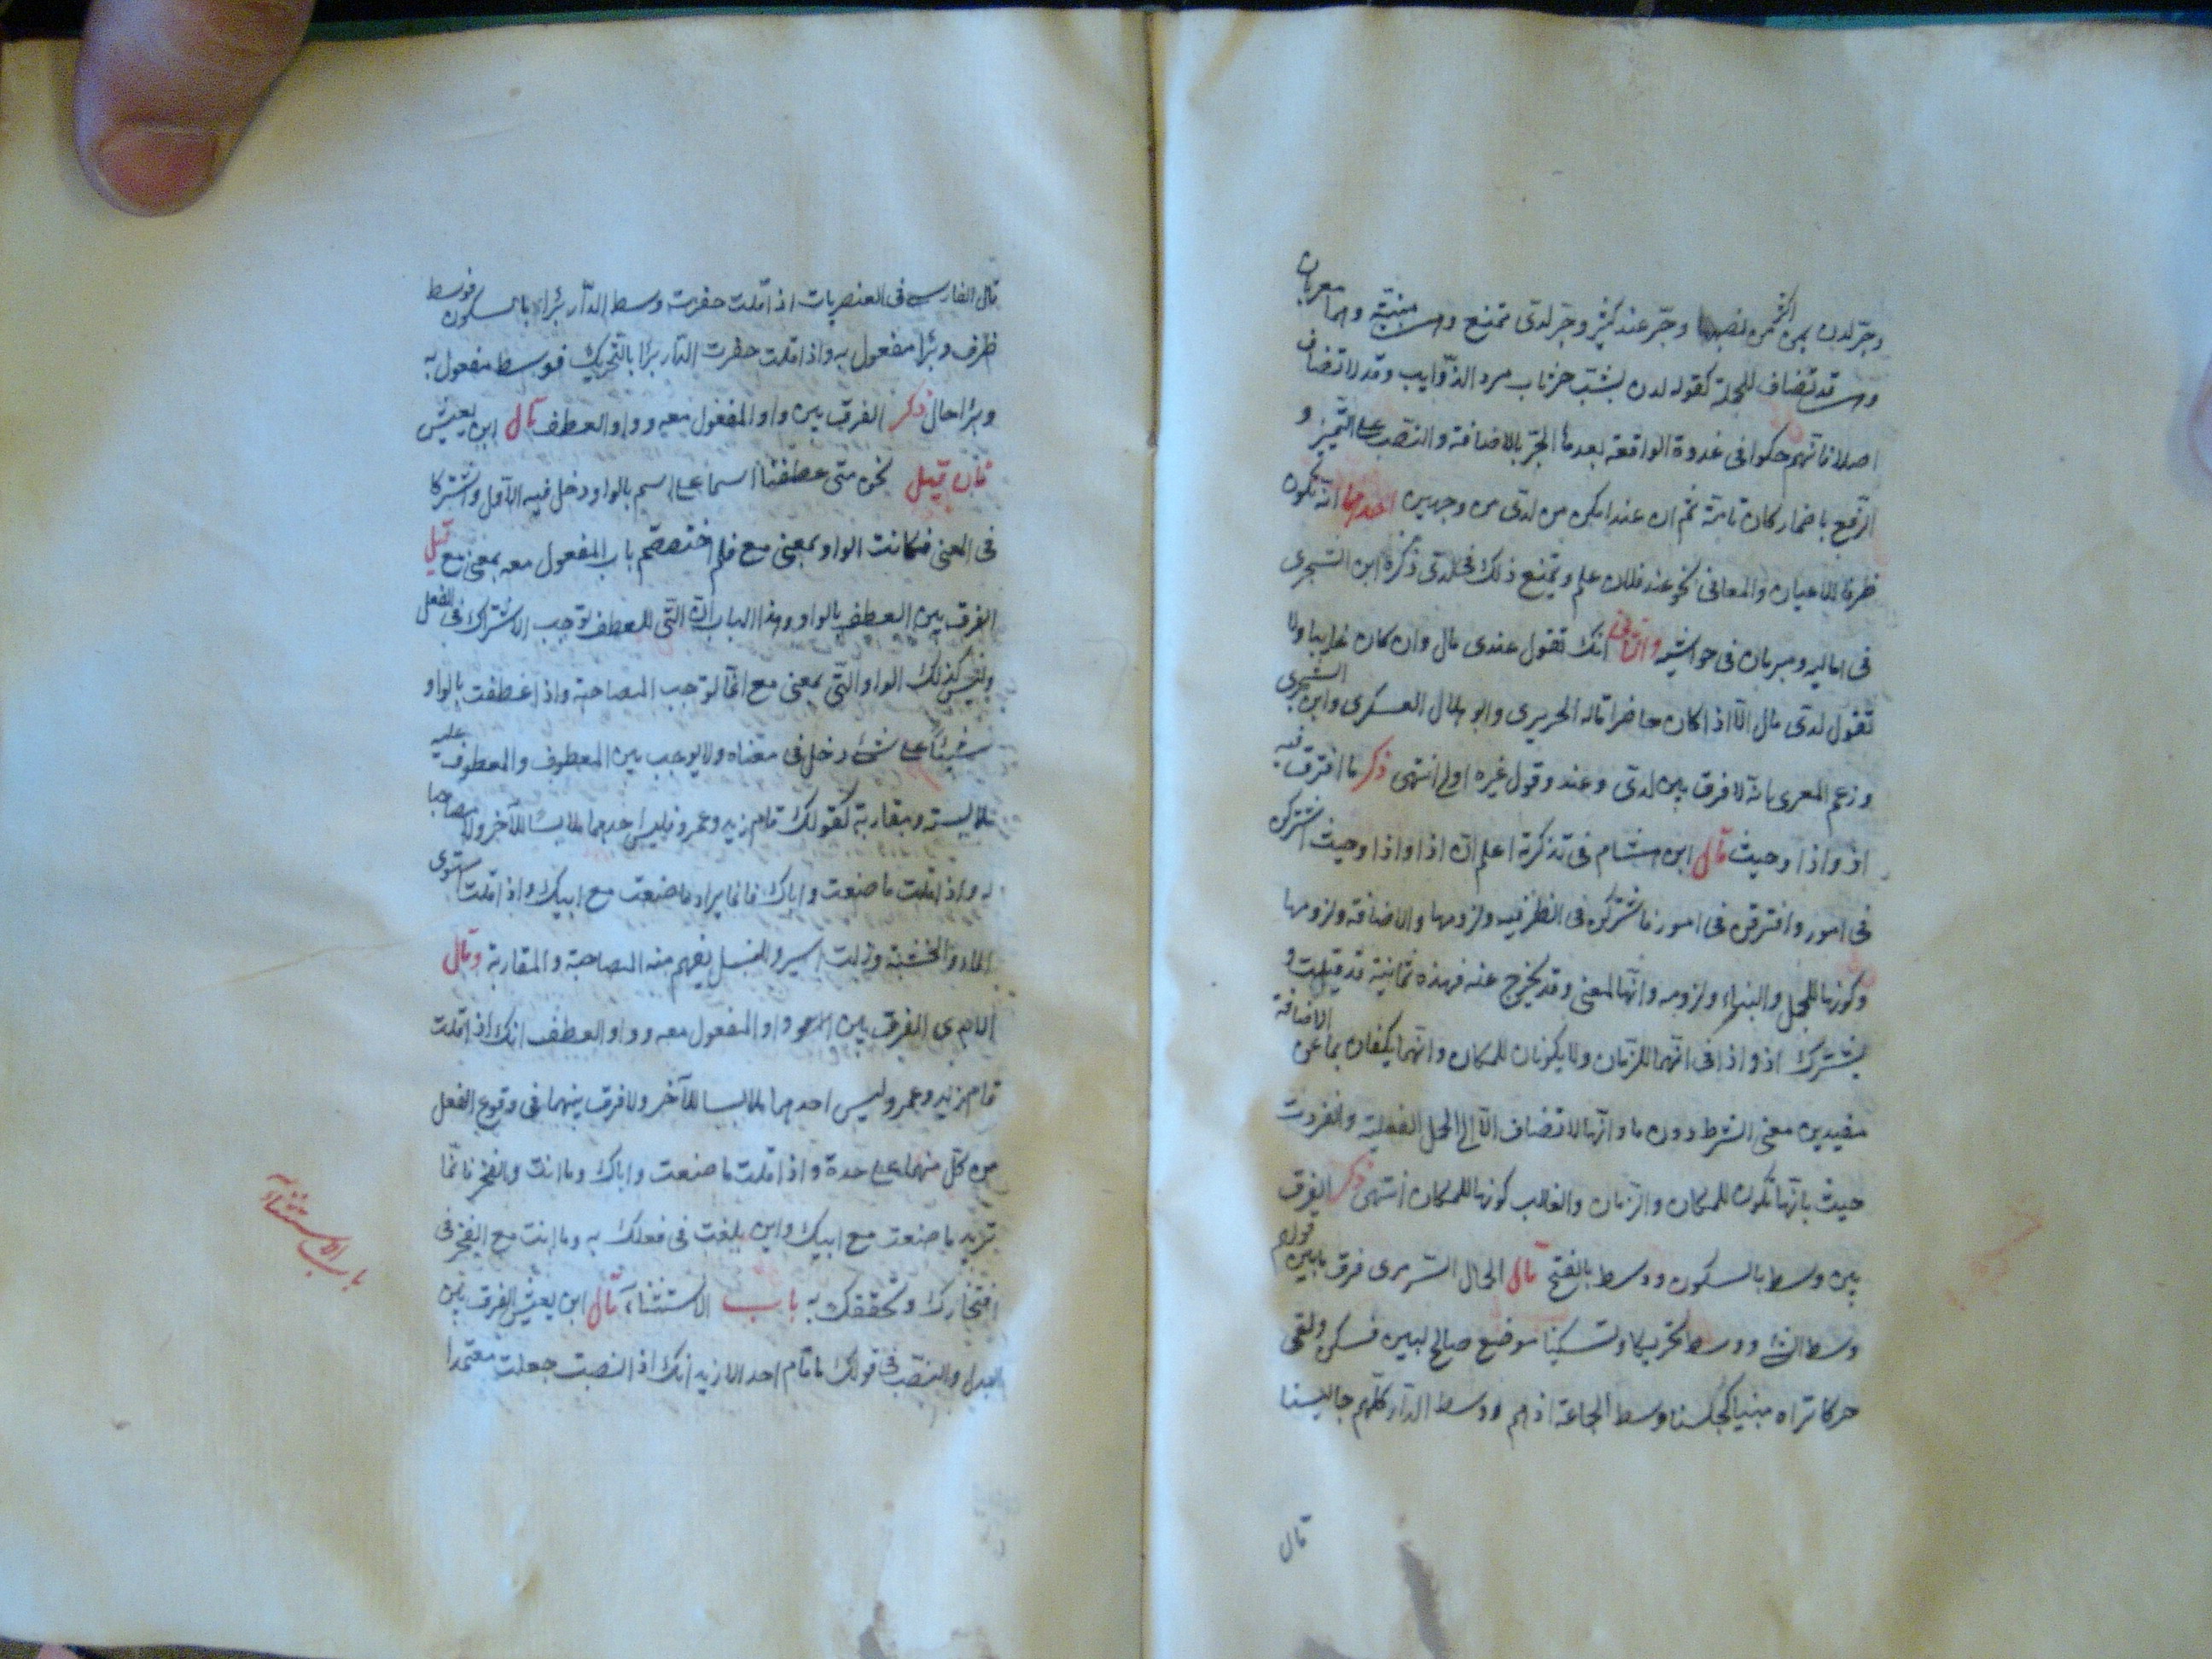 وجرّ لدن بمن اكثر من نصبها وجرّ عند كثير وجرّ لدى ممتنع وهى مبنيّة وهما معربان
وهى قد تضاف للجملة كقوله لدن شبّ حتى شاب سود الذّوايب وقد لا تضاف
اصلا فانّهم حكوا فى غدوة الواقعة بعدها الجرّ بالاضافة والنصب على التّمييز و
الرّفع باضمار كان تامّة ثمّ ان عند امكن من لدى من وجهين احدهما انّه تكون
ظرفا للاعيان والمعانى نحو عند فلان علم ويمتنع ذلك فى لدى ذكره ابن الشجرى
فى اماليه ومبرمان فى حواشيه والثانى انك تقول عندى مال وان كان غايبا ولا
تقول لدى مال الّا اذا كان حاضرا قاله الحريرى وابو هلال العسكرى وابن الشجرى
وزعم المعرى بانّه لا فرق بين لدى وعند وقول غيره اولى انتهى ذكر ما افترق فيه
اذ واذا وحيث قال ابن هشام فى تذكرة اعلم انّ اذ واذا وحيث اشتركن
فى امور وافترقن فى امور فاشتركن فى الظرفية ولزومها والاضافة ولزومها
وكونها للجمل والبناء ولزومه وانّها لمعنى وقد يخرج عنه فهذه ثمانية قد قيلت و
يشترك اذ واذا فى انّهما للزّمان ولا يكونان للمكان وانّهما يكفان بما عن الاضافة
مفيدين معنى الشرط دون ما وانّها لا تضاف الّا الى الجمل الفعلية وانفردت
حيث بانّها تكون للمكان والزّمان والغالب كونها للمكان انتهى ذكر الفرق
بين وسط بالسكون ووسط بالفتح قال الجمال السّرمرى فرق ما بين قولهم
وسط الشئ ووسط تحريكا وتسكينا موضع صالح لبين فسكن ولفى
حركا تراه مبنيا كجلسنا وسط الجماعة اذ هم ووسط الدّار كلّهم جالسينا
قال
قال الفارسى فى العنصريات اذا قلت حفرت وسط الدّار بئرا بالسكون فوسط
ظرف وبئرا مفعول به واذا قلت حفرت الدّار بئرا بالتحريك فوسط مفعول به
وبئرا حال ذكر الفرق بين واو المفعول معه وواو العطف قال ابن يعيش
فان قيل نحن متى عطفنا اسما على اسم بالواو دخل فيه الاوّل واشتركا
فى المعنى فكانت الواو بمعنى مع فلم اختصصتم باب المفعول معه بمعنى مع قيل
الفرق بين العطف بالواو وهذا الباب انّ الّتى للعطف توجب الاشتراك فى الفعل
وليس كذلك الواو الّتى بمعنى مع انّما توجب المصاحبة واذا عطفت بالواو
شيئا على شئ دخل فى معناه ولا يوجب بين المعطوف والمعطوف عليه
ملابسة ومقاربة كقولك قام زيد وعمرو فليس احدهما ملابسا للآخر ولا مصاحبا
له واذا قلت ما صنعت واباك فانما يراد ما صنعت مع ابيك واذا قلت استوى
الماء والخشبة وزلت اسير والنيل يفهم منه المصاحبة والمقاربة وقال
الامدى الفرق بين واو المفعول معه وواو العطف انك اذا قلت
قام زيد وعمرو ليس احدهما ملابسا للآخر ولا فرق بينهما فى وقوع الفعل
من كلّ منهما على حدة واذا قلت ما صنعت واباك وما انت والفخر فانّما
تريد ما صنعت مع ابيك واين بلغت فى فعلك به وما انت مع الفخر فى
افتخارك وتحققك به باب الاستثناء قال ابن يعيش الفرق بين
البدل والنصب فى قولك ما قام احد الا زيد انك اذا نصبت جعلت معتمدا
باب الاستثناء